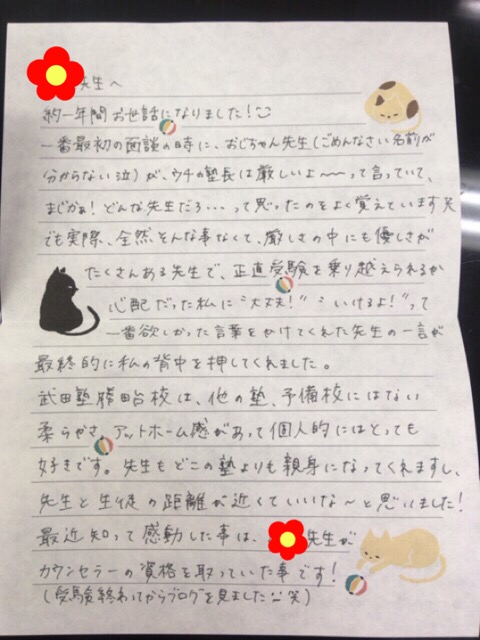 先生へ
約一年間お世話になりました!
一番最初の面談の時に、おじちゃん先生(ごめんなさい名前が
分からない泣)が、ウチの塾長は厳しいよ〜〜って言っていて、
まじかぁ!どんな先生だろ…って思ったのをよく覚えています笑
でも実際、全然そんな事なくて、厳しさの中にも優しさが
たくさんある先生で、正直受験を乗り越えられるか
心配だった私に"大丈夫!" "いけるよ!"って
一番欲しかった言葉をかけてくれた先生の一言が
最終的に私の背中を押してくれました。
武田塾勝田台校は、他の塾、予備校にはない
柔らかさ、アットホーム感があって個人的にはとっても
好きです。先生もどこの塾よりも親身になってくれますし、
先生と生徒の距離が近くていいな〜と思いました!
最近知って感動した事は、先生が
カウンセラーの資格を取っていた事です!
(受験終わってからブログを見ました笑)